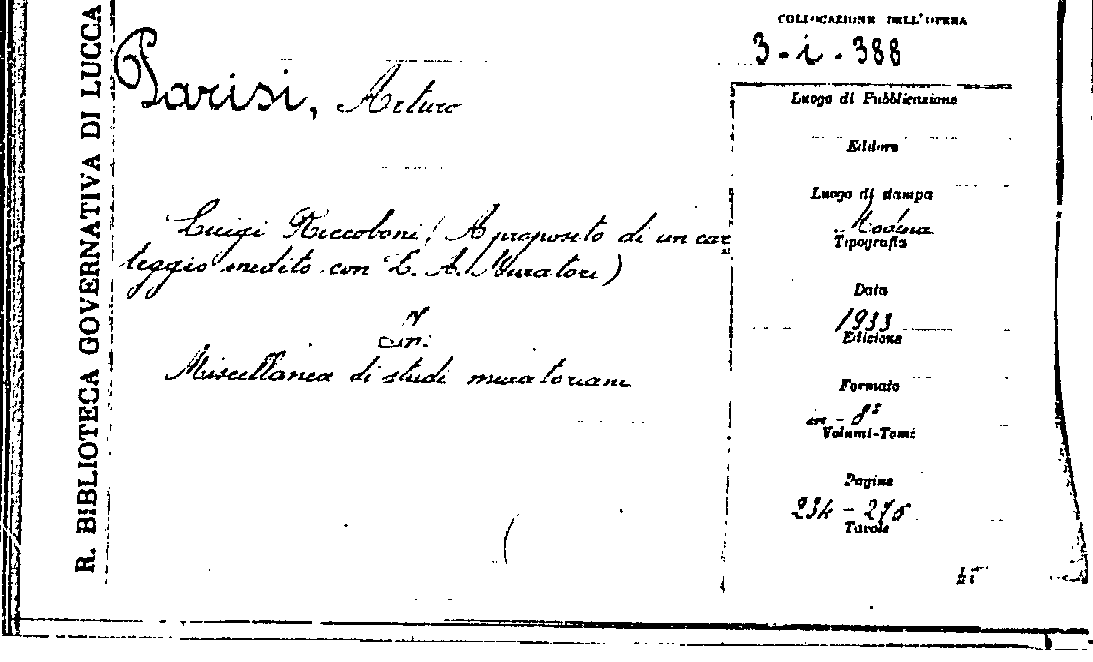 R. BIBLIOTECA GOVERNATIVA DI LUCCA
COLLOCAZIONE DELL'OPERA
3-i-388
Parisi, Arturo
Luogo di Pubblicazione
Editore
Luogo di stampa
Modena
Luigi Riccoboni (A proposito di un car
teggio inedito con L. A. Muratori)
Tipografia
Data
1933
in:
Edizione
Miscellanea di studi muratoriani
Formato
in-8°
Volumi-Tomi
Pagine
Tavole